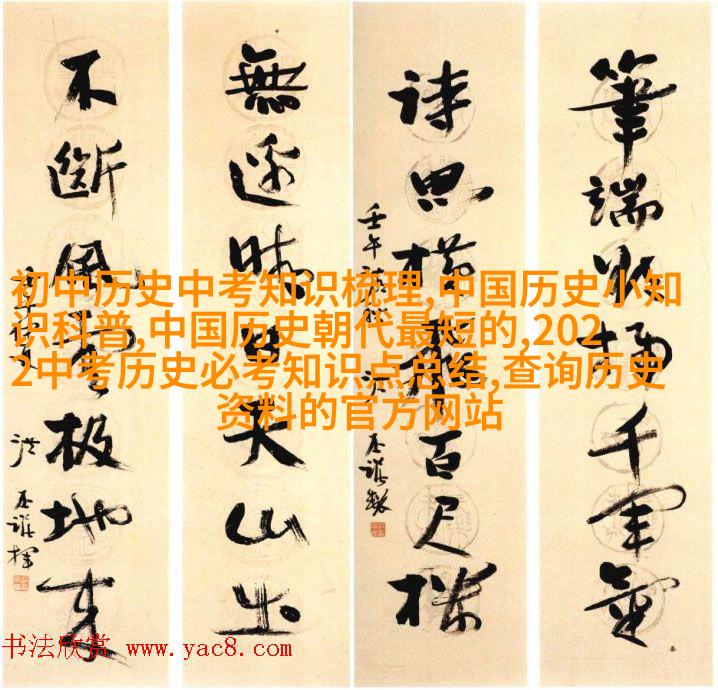 初中历史中考知识梳理,中国历史小知
识科普,中国历史朝代最短的,202
2中考历史必考知识点总结,查询历史
资料的官方网站
筆端掃千軍氣
詩思橫百尺樓
壬午
無邊晴天山出
不斷風雲極地來
书法欣赏 www.yac8.com